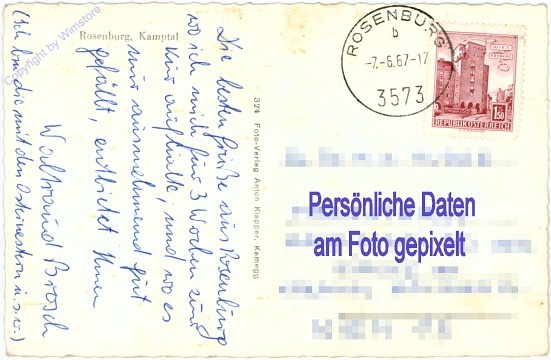 Copyright by Wimstore
Rosenburg, Kamptal
Die besten Grüße aus Rosenburg
wo ich mich für 3 Wochen zur
Kur aufhalte, und wo es
mir ausnehmend gut
gefällt, entbietet Ihnen
Waltraud Brosch
(Ich bin die mit den Osternestern u.s.w.)
324 Foto-Verlag Anton Klapper, Kamegg
ROSENBURG
b
-7.-6.67-17
3573
1.50
REPUBLIK ÖSTERREICH
Persönliche Daten
am Foto gepixelt